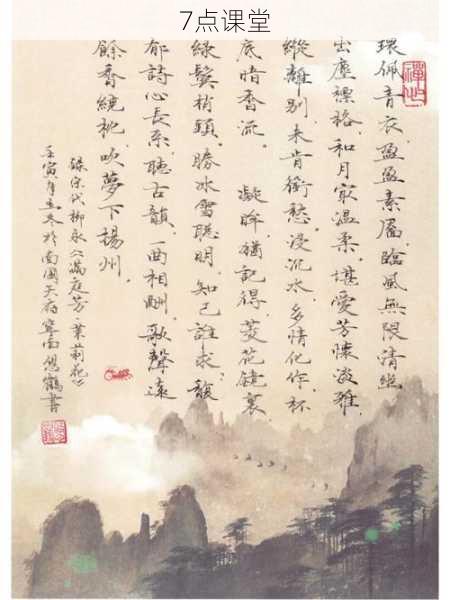 7点课堂
環佩青衣，盈盈素靨，臨風無限清幽。
出塵標格，和月最温柔。堪愛芳懷淡雅，
縱離別、未肯衔愁。浸沉水，多情化作，杯
底暗香流。凝眸。猶記得，菱花鏡裏，
綠鬢梢頭。勝冰雪聰明，知己誰求？馥
郁詩心長系，聽古韻、一曲相酬。歌聲遠，
餘香繞枕，吹夢下揚州。
錄宋代柳永《滿庭芳·茉莉花》
壬寅年孟冬於南國天府寧南